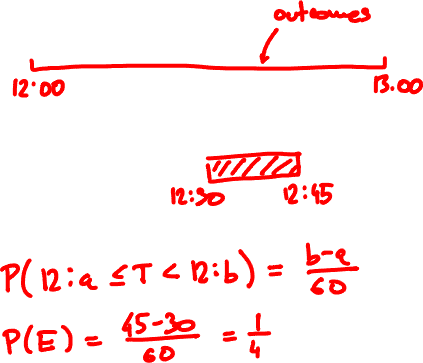 outcomes
12:00 13.00
12:30 12:45
P(12:a ≤ T < 12:b) = b-a/60
P(E) = 45-30/60 = 1/4